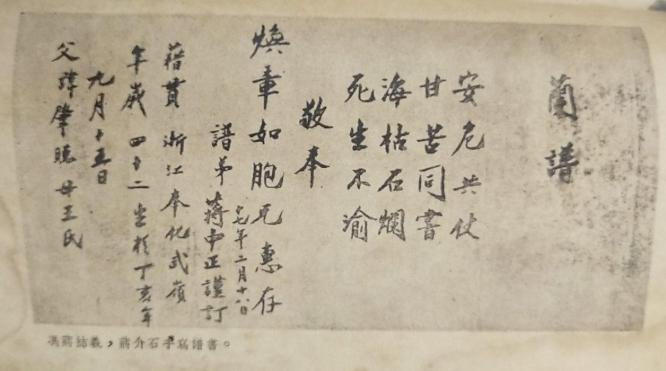 蘭譜
安危共仗
甘苦同嘗
海枯石爛
死生不渝
敬奉
煥章如胞兄惠存
十七年二月十八日
譜弟蔣中正謹訂
藉貫 浙江奉化武嶺
年歲 四十二 生於丁亥年
九月十五日
父諱肇聰 母王氏
馮蔣結義，蔣介石手寫譜書。